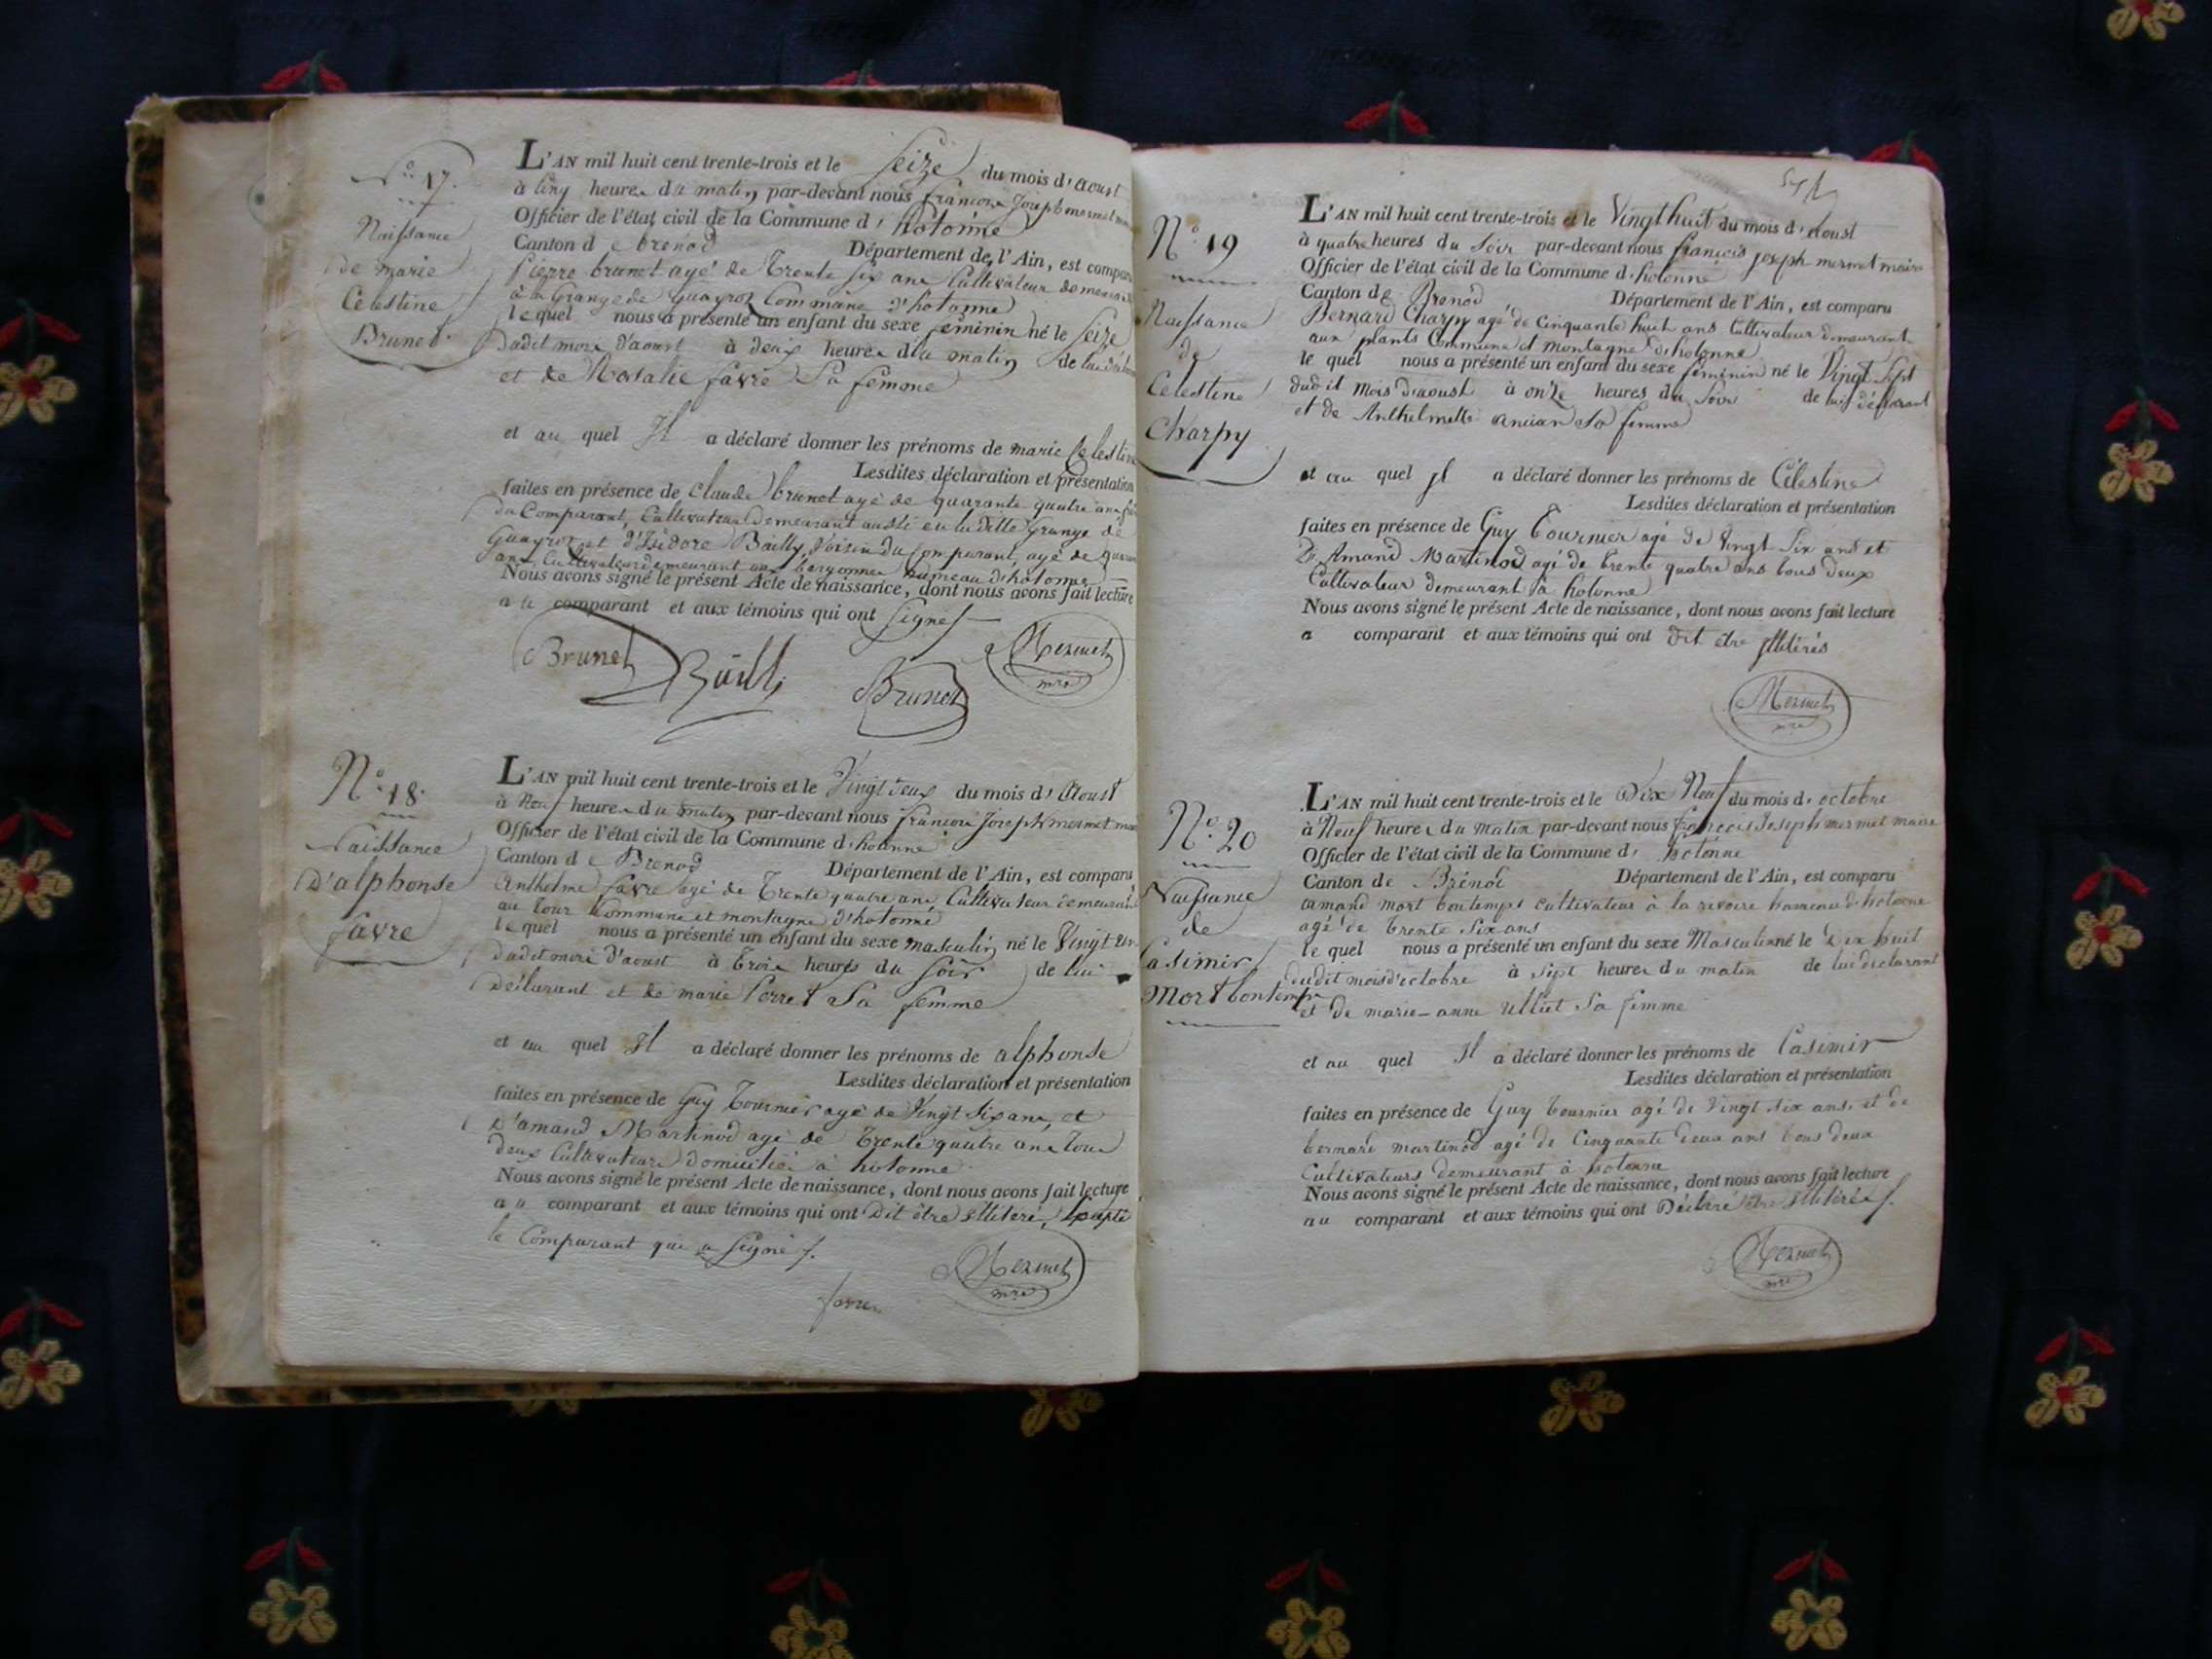 N.o 17.
Naissance
de marie
Celestine
Brunet
L'AN mil huit cent trente-trois et le Seize du mois d'Aoust
à Cinq heures du matin par-devant nous francois Joseph mermet
Officier de l'état civil de la Commune d'hotonne
Canton de brenod Département de l'Ain, est comparu
pierre brunet agé de Trente six ans Cultivateur
à la Grange de Guayroz Commune d'hotonne
lequel nous a présenté un enfant du sexe feminin né le Seize
dudit mois d'aoust à deux heures du matin de lui
et de Rosalie favre Sa femme
et au quel Il a déclaré donner les prénoms de marie Celestine
Lesdites déclaration et présentation
faites en présence de Claude brunet agé de quarante quatre ans
du Comparant, Cultivateur demeurant aussi en ladite Grange de
Guayroz et d'Isidore Bailly, Voisin du Comparant, agé de
ans, Cultivateur demeurant aux hameau d'hotonne
Nous avons signé le présent Acte de naissance, dont nous avons fait lecture
a le comparant et aux témoins qui ont Signés
Brunet Bailly Brunet Mermet
mre
N.o 18.
Naissance
D'alphonse
favre
L'AN mil huit cent trente-trois et le Vingt deux du mois d'Aoust
à Neuf heures du matin par-devant nous francois Joseph mermet
Officier de l'état civil de la Commune d'hotonne
Canton de Brenod Département de l'Ain, est comparu
Anthelme favre agé de Trente quatre ans, Cultivateur demeurant
au tour Commune et montagne d'hotonne
lequel nous a présenté un enfant du sexe masculin né le Vingt un
dudit mois d'aoust à trois heures du soir de lui
Déclarant et de marie Perret Sa femme
et au quel Il a déclaré donner les prénoms de alphonse
Lesdites déclaration et présentation
faites en présence de Guy Tournier agé de Vingt Six ans, et
D'amand Martinod agé de Trente quatre ans tous
deux Cultivateurs domiciliés à hotonne
Nous avons signé le présent Acte de naissance, dont nous avons fait lecture
au comparant et aux témoins qui ont Dit être illiteré,
le Comparant qui a Signé
favre Mermet
mre
N.o 19
Naissance
de
Celestine
Charpy
L'AN mil huit cent trente-trois et le Vingt huit du mois d'Aoust
à quatre heures du Soir par-devant nous francois joseph mermet maire
Officier de l'état civil de la Commune d'hotonne
Canton de Brenod Département de l'Ain, est comparu
Bernard Charpy agé de Cinquante huit ans Cultivateur demeurant
aux plants Commune et montagne d'hotonne
le quel nous a présenté un enfant du sexe féminin né le Vingt Sept
dudit Mois d'aoust à onze heures du Soir de lui déclarant
et de Anthelmette ancian Sa femme
et au quel Il a déclaré donner les prénoms de Célestine
Lesdites déclaration et présentation
faites en présence de Guy Tournier agé de Vingt Six ans et
D'Amand Martinod agé de trente quatre ans tous deux
Cultivateur demeurant à hotonne
Nous avons signé le présent Acte de naissance, dont nous avons fait lecture
a comparant et aux témoins qui ont dit être illitérés
Mermet
mre
N.o 20
Naissance
de
Casimir
Mort bontemps
L'AN mil huit cent trente-trois et le Dix Neuf du mois d'octobre
à Neuf heures du matin par-devant nous francois Joseph mermet maire
Officier de l'état civil de la Commune d'hotonne
Canton de Brénod Département de l'Ain, est comparu
amand mort bontemps cultivateur à la revoire hameau d'hotonne
agé de trente Six ans
le quel nous a présenté un enfant du sexe Masculin né le Dix huit
dudit mois d'octobre à sept heures du matin de lui déclarant
et de marie-anne Sa femme
et au quel Il a déclaré donner les prénoms de Casimir
Lesdites déclaration et présentation
faites en présence de Guy tournier agé de Vingt six ans, et de
bernard martinod agé de Cinquante deux ans tous deux
Cultivateurs demeurant à hotonne
Nous avons signé le présent Acte de naissance, dont nous avons fait lecture
au comparant et aux témoins qui ont Déclaré être illitérés
Mermet
mre